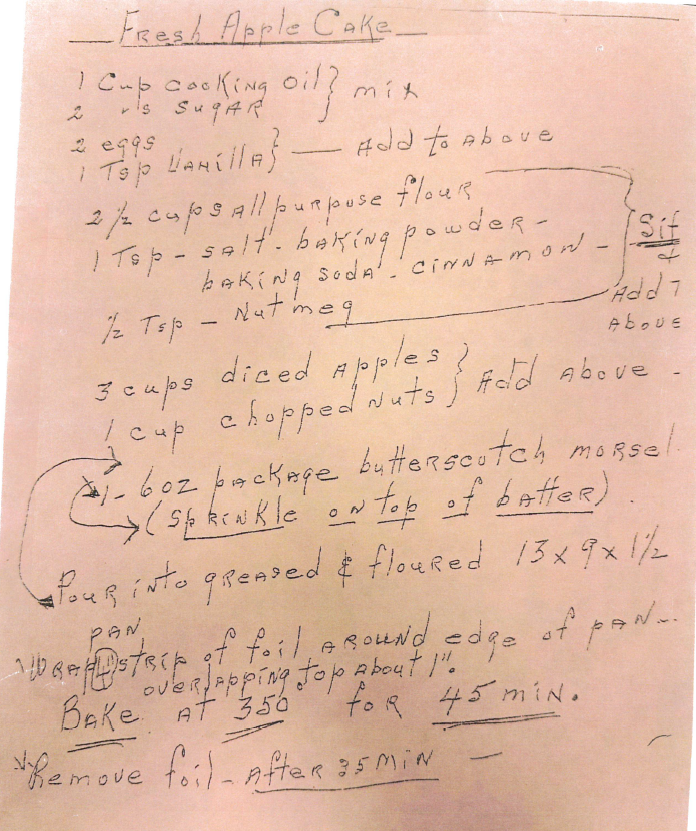 Fresh Apple Cake
1 Cup cooking oil } mix
2 "s Sugar
2 eggs
1 Tsp Vanilla } — Add to above
2 1/2 cups all purpose flour
1 Tsp - salt - baking powder -
baking soda - cinnamon - Sif
&
1/2 Tsp - Nutmeg
Add T
Above
3 cups diced apples
1 cup chopped nuts } Add above -
1 - 6oz package butterscotch morsel
(sprinkle on top of batter).
Pour into greased & floured 13 x 9 x 1 1/2
pan
Wrap 4" strip of foil around edge of pan--
overlapping top about 1".
Bake at 350° for 45 min.
Remove foil - After 35 min -